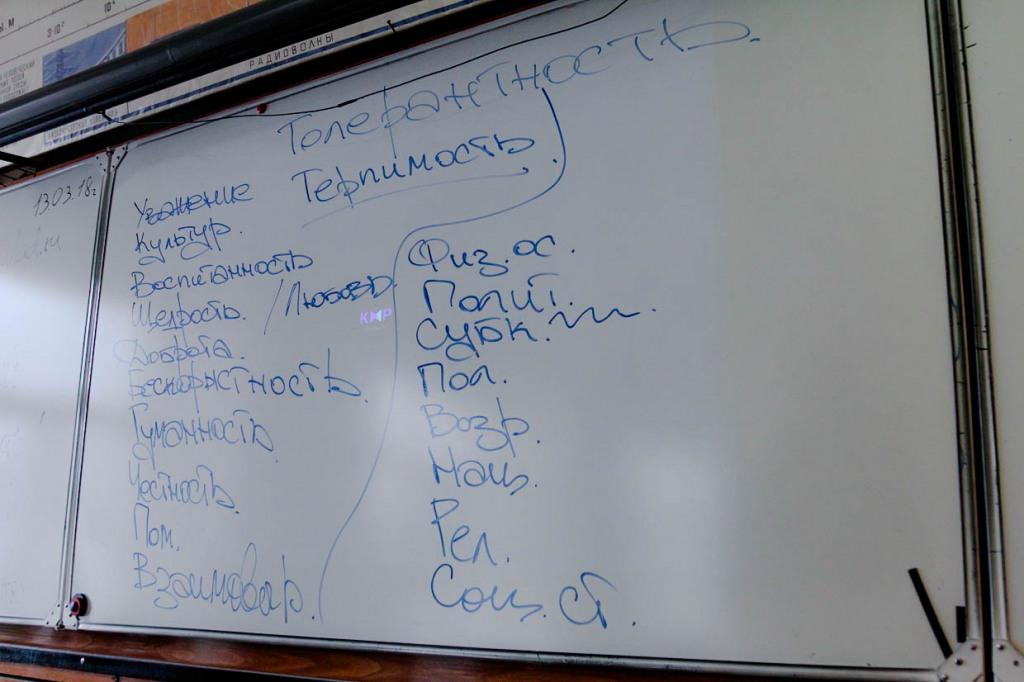 3·10² 10⁴
РАДИОВОЛНЫ
13.03.18г
Толерантность.
Терпимость.
Уважение
Культур.
Воспитанность
Щедрость. /Любовь.
Доброта.
Бескорыстность.
Гуманность
Честность.
Пом.
Взаимовыр.
Физ.ос.
Полит.
Субк.
Пол.
Возр.
Нац.
Рел.
Соц. ст.
КМР